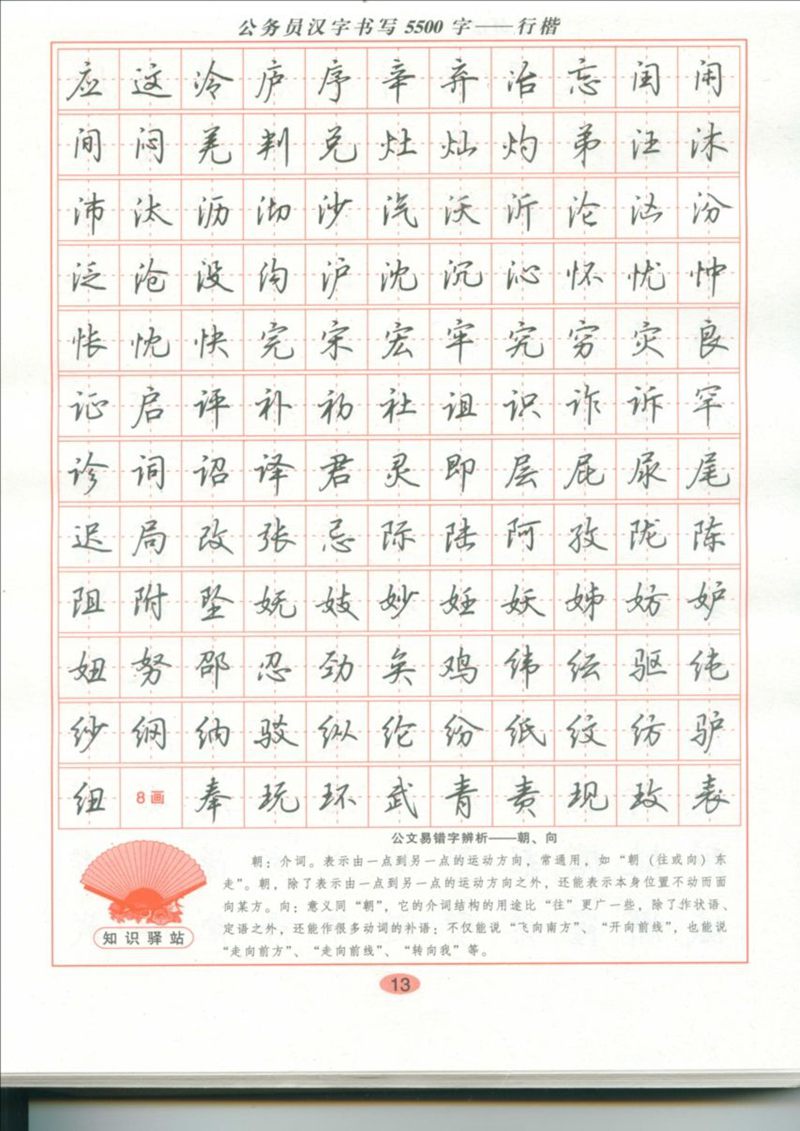 公务员汉字书写5500字——行楷
应 这 冷 庐 序 辛 弃 冶 忘 闰 闲
间 闷 羌 判 兑 灶 灿 灼 弟 汪 沐
沛 汰 沥 沏 沙 汽 沃 沂 沦 汹 汾
泛 沧 没 沟 沪 沈 沉 沁 怀 忧 忡
怅 忱 快 完 宋 宏 牢 究 穷 灾 良
证 启 评 补 初 社 诅 识 诈 诉 罕
诊 词 诏 译 君 灵 即 层 屁 尿 尾
迟 局 改 张 忌 际 陆 阿 孜 陇 陈
阻 附 坠 妩 妓 妙 妊 妖 姊 妨 妒
妞 努 邵 忍 劲 矣 鸡 纬 纭 驱 纯
纱 纲 纳 驳 纵 纶 纷 纸 纹 纺 驴
纽 8画 奉 玩 环 武 青 责 现 玫 表
公文易错字辨析——朝、向
朝：介词。表示由一点到另一点的运动方向，常通用，如“朝（往或向）东
走”。朝，除了表示由一点到另一点的运动方向之外，还能表示本身位置不动而面
向某方。向：意义同“朝”，它的介词结构的用途比“往”更广一些，除了作状语、
定语之外，还能作很多动词的补语：不仅能说“飞向南方”、“开向前线”，也能说
“走向前方”、“走向前线”、“转向我”等。
知识驿站
13